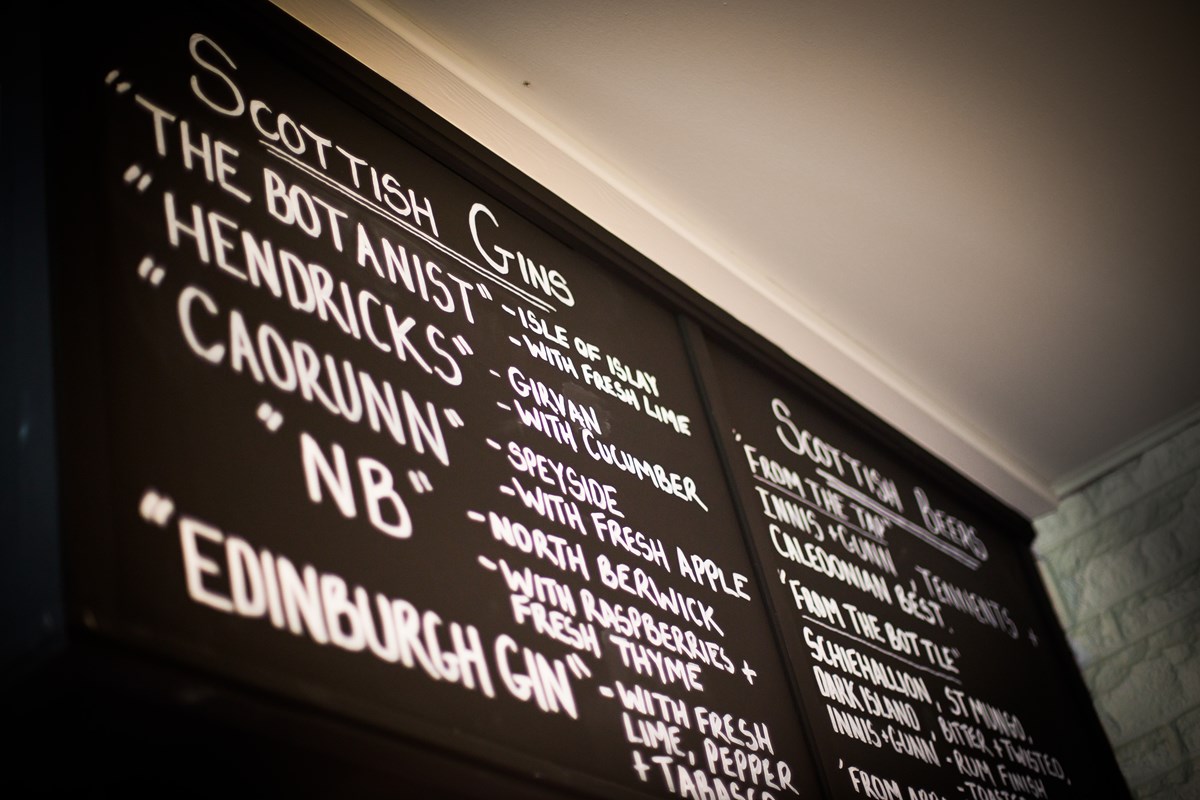 Scottish Gins
"THE BOTANIST" - ISLE OF ISLAY
- WITH FRESH LIME
"HENDRICKS" - GIRVAN
- WITH CUCUMBER
"CAORUNN" - SPEYSIDE
- WITH FRESH APPLE
"NB" - NORTH BERWICK
- WITH RASPBERRIES +
FRESH THYME
"EDINBURGH GIN" - WITH FRESH
LIME, PEPPER
+ TABASCO
Scottish Beers
"FROM THE TAP"
INNIS + GUNN, TENNENTS +
CALEDONIAN BEST.
"FROM THE BOTTLE"
SCHIEHALLION, ST MUNGO,
DARK ISLAND, BITTER + TWISTED,
INNIS + GUNN - RUM FINISH
- TOASTED
"FROM